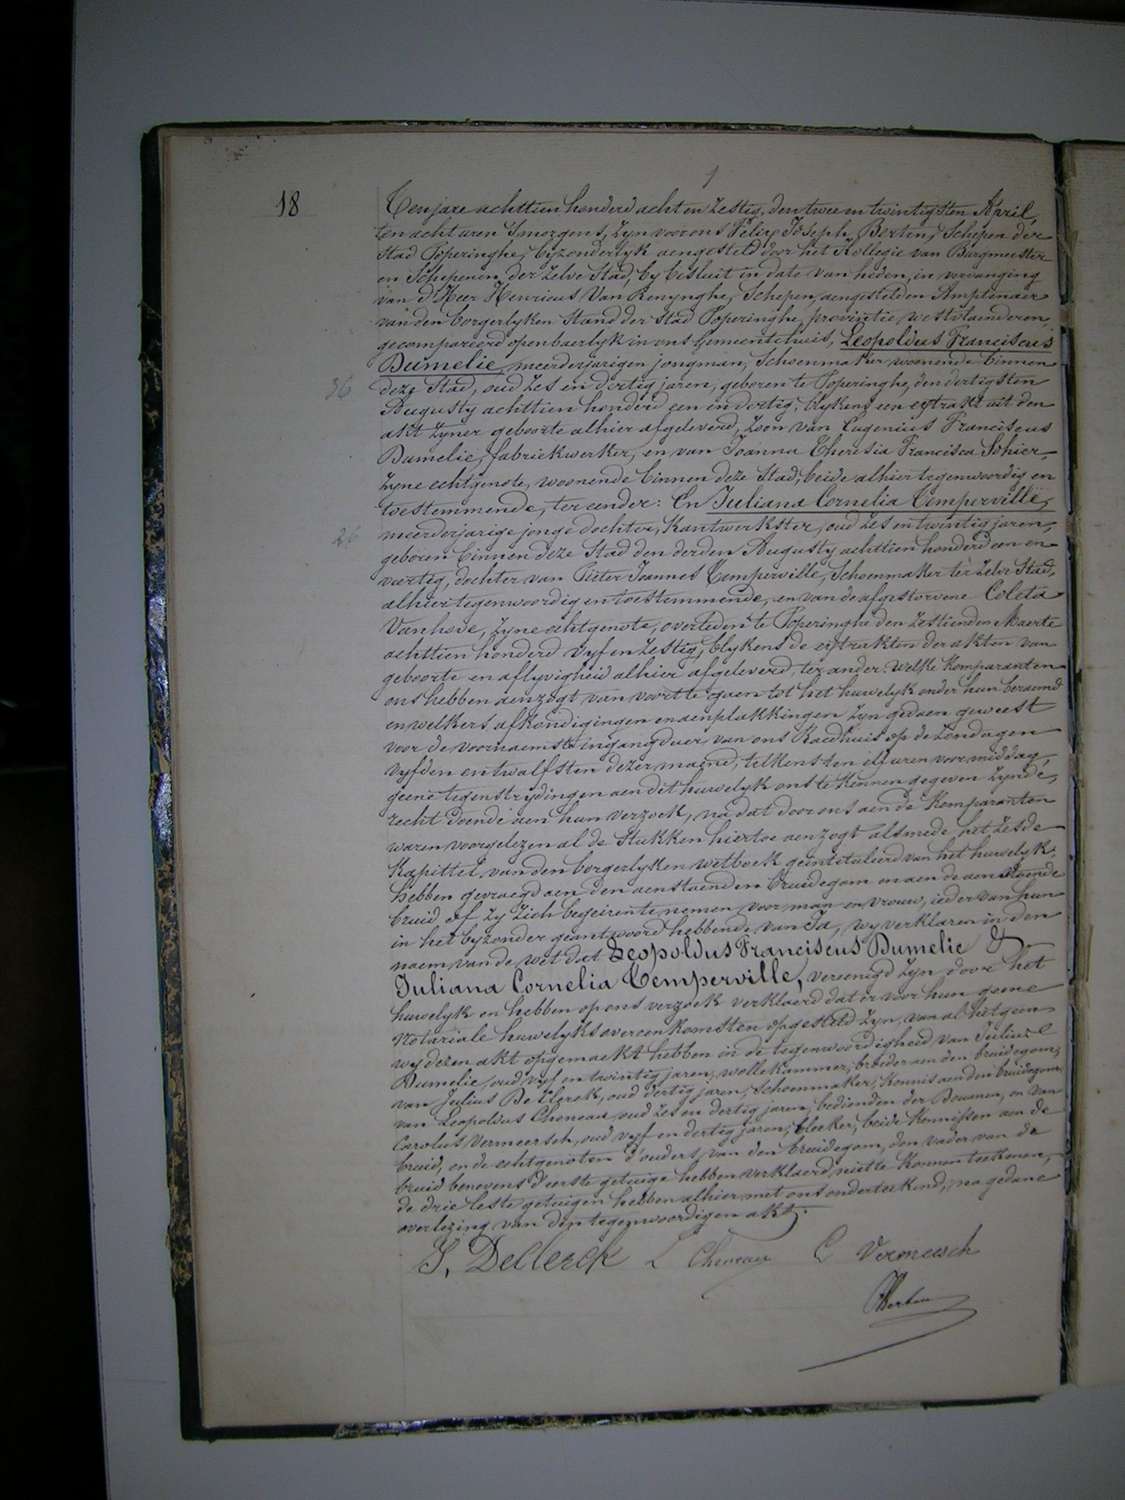 18
Ten jare achttien honderd acht en zestig, den twee en twintigsten April,
ten acht uren 's morgens, zyn voor ons Félix Joseph Berten, Schepen der
stad Poperinghe, byzonderlyk aengesteld door het Kollegie van Burgmeester
en Schepenen der zelve Stad, by besluit in date van heden, in vervanging
van d'Heer Henricus Van Renynghe, Schepen, aengestelden Amptenaer
van den borgerlyken Stand der stad Poperinghe, provintie westvlaenderen,
gecompareerd openbaerlyk in ons Gemeentehuis, Leopoldus Franciscus
Dumelie, meerderjarigen jongman, Schoenmaker, woonende binnen
36 deze Stad, oud zes en dertig jaren, geboren te Poperinghe, den dertigsten
Augusty achttien honderd een en dertig, blykens een extrakt uit den
akt zyner geboorte alhier afgeleverd, Zoon van Eugenius Franciscus
Dumelie, fabriekwerker, en van Joanna Theresia Francisca Sohier,
zyne echtgenote, woonende binnen deze Stad, beide alhier tegenwoordig en
toestemmende, ter eender: En Juliana Cornelia Temperville,
26 meerderjarige jonge dochter, Kantwerkster, oud zes en twintig jaren,
geboren binnen deze Stad den derden Augusty achttien honderd een en
veertig, dochter van Pieter Joannes Temperville, Schoenmaker ter zelve Stad,
alhier tegenwoordig en toestemmende, en van de afgestorvene Coleta
Vanhove, zyne echtgenote, overleden te Poperinghe den zestienden Maerte
achttien honderd vyf en zestig, blykens de extrakten der akten van
geboorte en aflyvigheid alhier afgeleverd, ter ander. Welke komparanten
ons hebben aenzogt van voort te gaen tot het huwelyk onder hun beraemd
en welkers afkondigingen en aenplakkingen zyn gedaen geweest
voor de voornaemste ingangdeur van ons Raedhuis op de zondagen
vyfden en twalfsten dezer maend, telkens ten elf uren voormiddag,
geene tegenstrydingen aen dit huwelyk ons te kennen gegeven zynde,
recht doende aen hun verzoek, na dat door ons aen de komparanten
waren voorgelezen al de stukken hiertoe aenzogt alsmede het zesde
Kapittel van den borgerlyken wetboek geintituleerd van het huwelyk;
hebben gevraegd aen den aenstaenden bruidegom en aen de aenstaende
bruid of zy zich begeiren te nemen voor man en vrouw, ieder van hun
in het byzonder geantwoord hebbende van Ja, wy verklaren in den
naem van de wet dat Leopoldus Franciscus Dumelie &
Juliana Cornelia Temperville, vereenigd zyn door het
huwelyk en hebben op ons verzoek verklaerd dat er voor hun geene
notariale huwelyksovereenkomsten opgesteld zyn, van al hetgeen
wy dezen akt opgemaekt hebben in de tegenwoordigheid van Julius
Dumelie, oud vyf en twintig jaren, wollekammer, broeder aen den bruidegom;
van Julius De Clerck, oud dertig jaren, Schoenmaker, Kennis aen den bruidegom;
van Leopoldus Cheneau, oud zes en dertig jaren, bedienden der Douanen, en van
Carolus Vermeersch, oud vyf en dertig jaren, bleeker, beide Kennissen aen de
bruid, en de echtgenoten d'ouders van den bruidegom, den vader van de
bruid benevens d'eerste getuige hebben verklaerd niet te konnen teekenen,
de drie leste getuigen hebben alhier met ons onderteekend, na gedane
overlezing van den tegenwoordigen akt.
J. DeClerck L Cheneau C Vermeersch
Berten